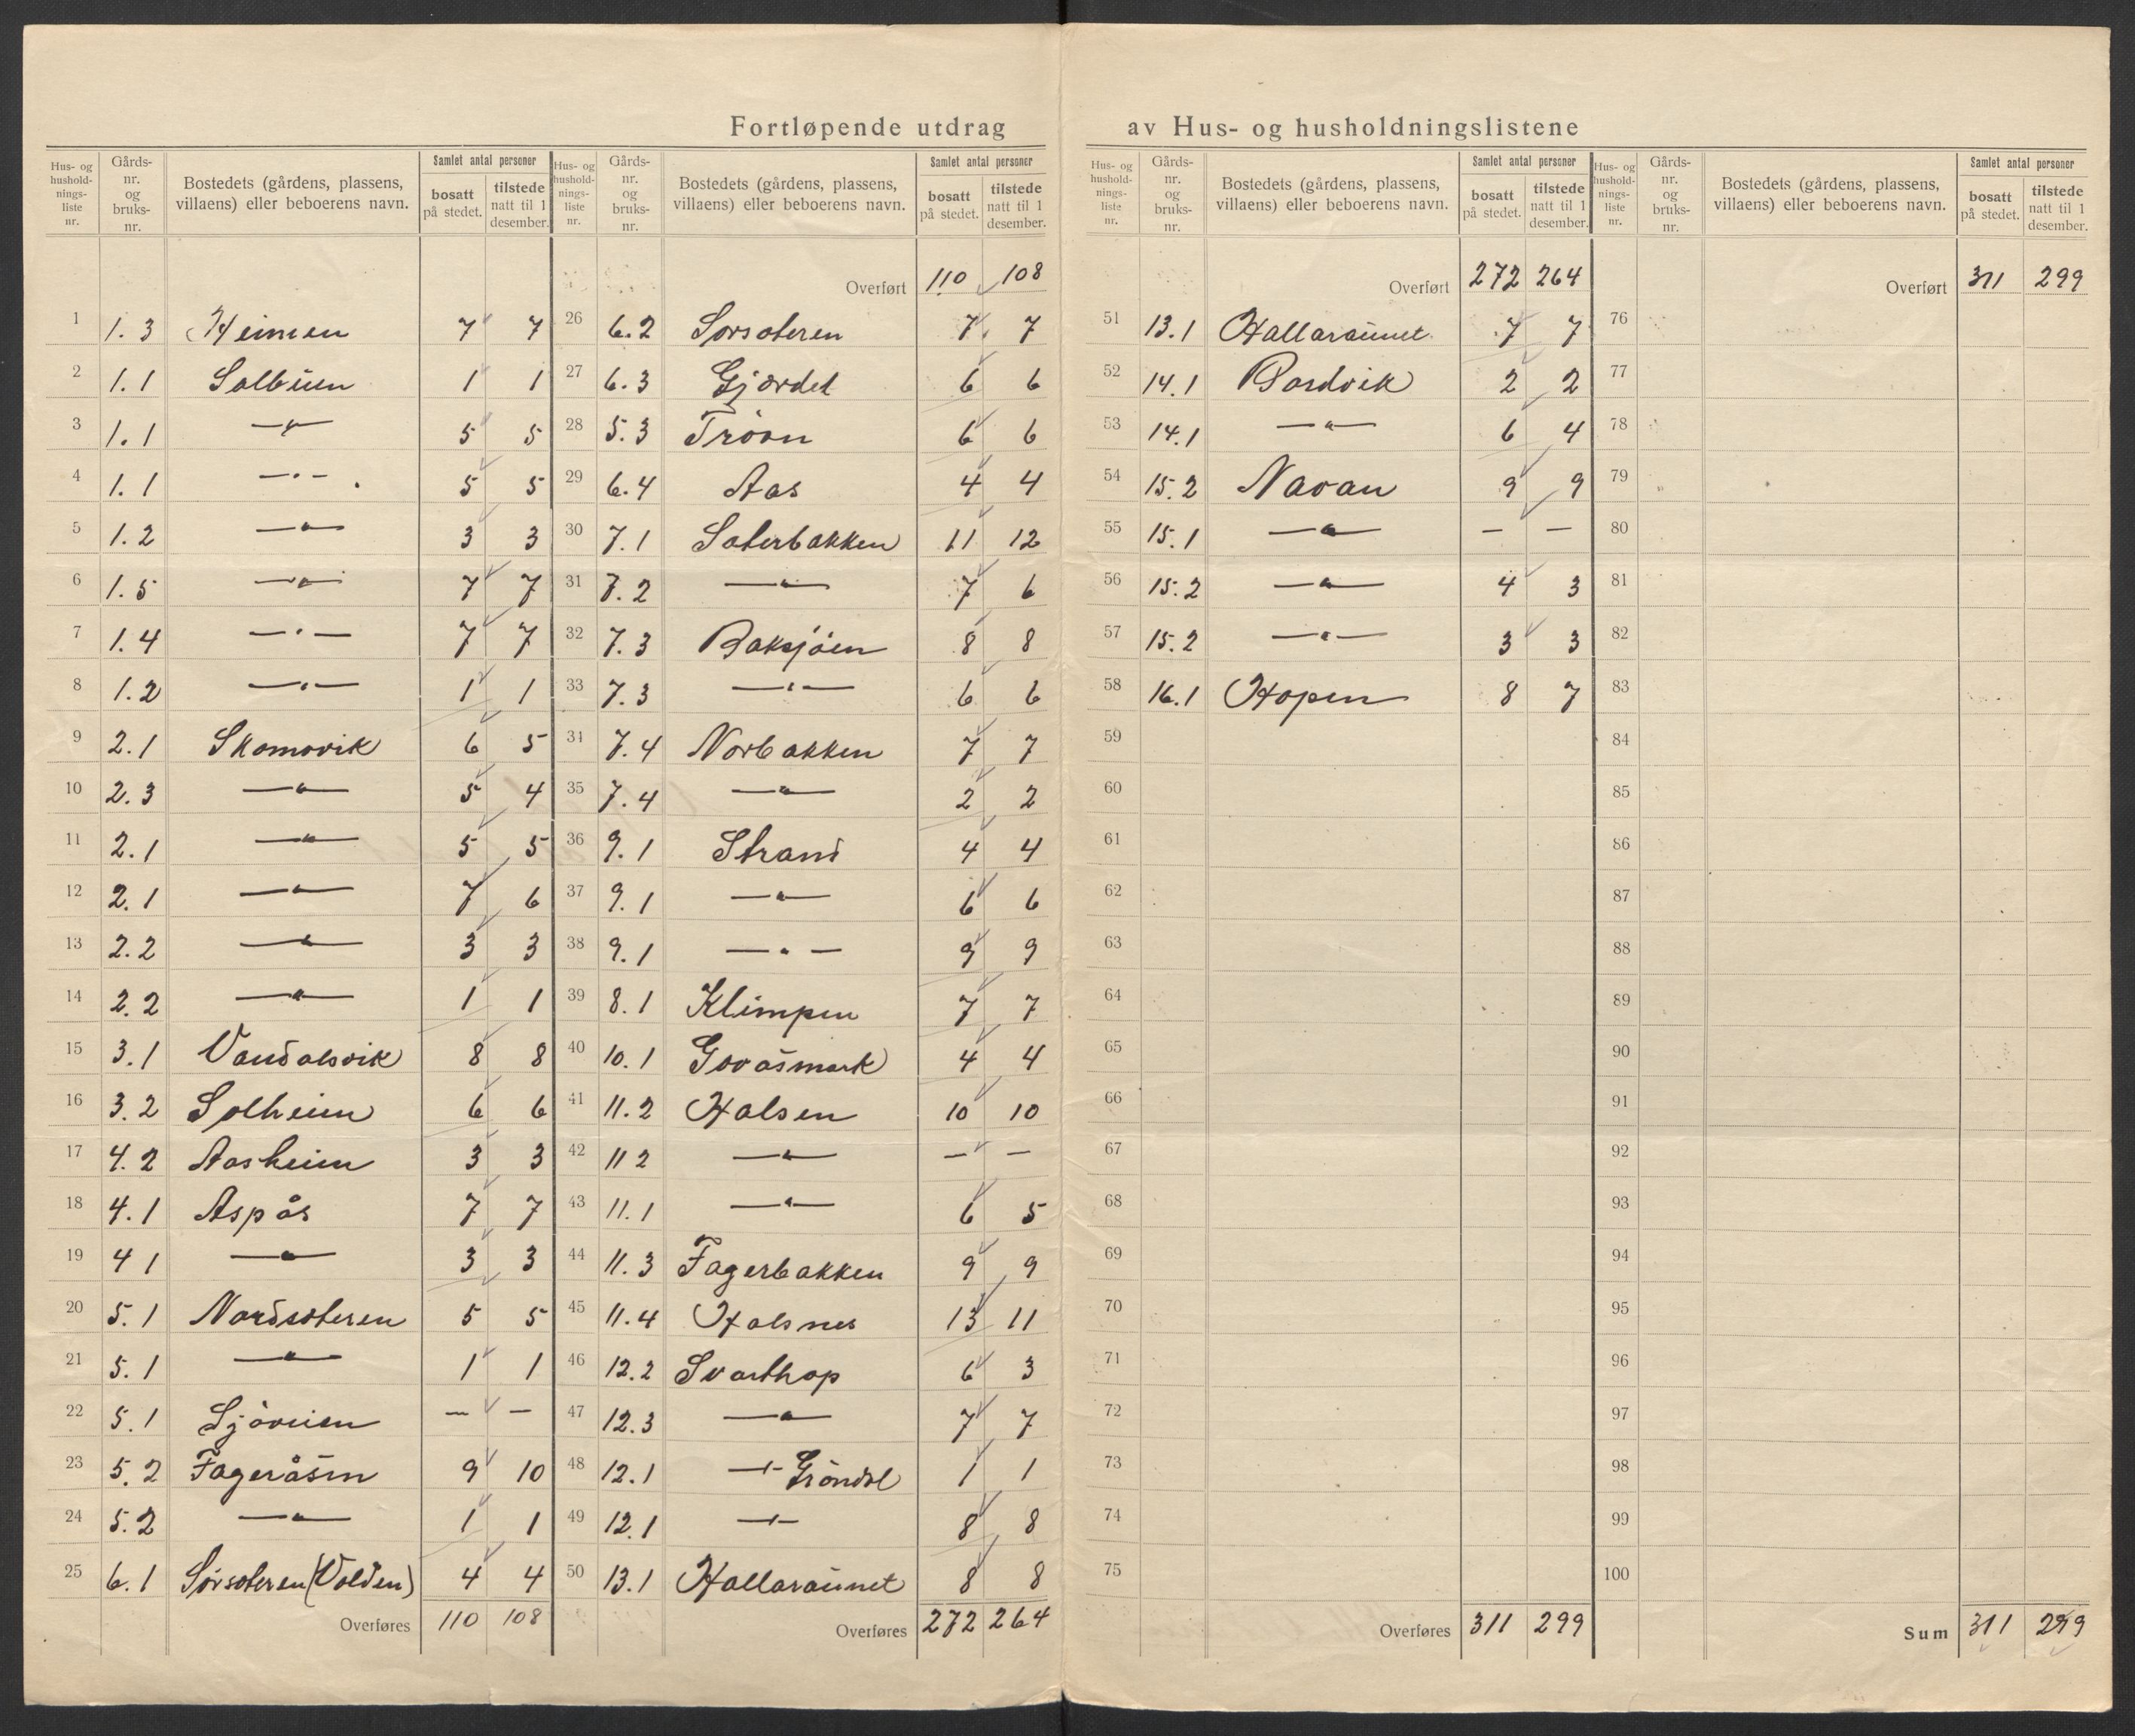 Fortløpende utdrag av Hus- og husholdningslistene
Hus- og husholdningsliste nr. | Gårds-nr. og bruks-nr. | Bostedets (gårdens, plassens, villaens) eller beboerens navn. | Samlet antal personer bosatt på stedet. | tilstede natt til 1 desember.
1 1.3 Heimen 7 7
2 1.1 Salbuen 1 1
3 1.1 —"— 5 5
4 1.1 —"— 5 5
5 1.2 —"— 3 3
6 1.5 —"— 7 7
7 1.4 —"— 7 7
8 1.2 —"— 1 1
9 2.1 Skomovik 6 5
10 2.3 —"— 5 4
11 2.1 —"— 5 5
12 2.1 —"— 7 6
13 2.2 —"— 3 3
14 2.2 —"— 1 1
15 3.1 Vandalsvik 8 8
16 3.2 Solheim 6 6
17 4.2 Aasheim 3 3
18 4.1 Aspås 7 7
19 4 1 —"— 3 3
20 5.1 Nordsæteren 5 5
21 5.1 —"— 1 1
22 5.1 Sjöveien — —
23 5.2 Fageråsen 9 10
24 5.2 —"— 1 1
25 6.1 Sörsæteren (Volden) 4 4
Overføres 110 108
Hus- og husholdningsliste nr. | Gårds-nr. og bruks-nr. | Bostedets (gårdens, plassens, villaens) eller beboerens navn. | Samlet antal personer bosatt på stedet. | tilstede natt til 1 desember.
Overført 110 108
26 6.2 Sörsæteren 7 7
27 6.3 Gjærdet 6 6
28 5.3 Tröen 6 6
29 6.4 Aas 4 4
30 7.1 Sæterbakken 11 12
31 7.2 —"— 7 6
32 7.3 Baksjöen 8 8
33 7.3 —"— 6 6
34 7.4 Norbakken 7 7
35 7.4 —"— 2 2
36 9.1 Strand 4 4
37 9.1 —"— 6 6
38 9.1 —"— 9 9
39 8.1 Klimpen 7 7
40 10.1 Govasmark 4 4
41 11.2 Halsen 10 10
42 11 2 —"— — —
43 11.1 —"— 6 5
44 11.3 Fagerbakken 9 9
45 11.4 Halsnes 13 11
46 12.2 Svarthop 6 3
47 12.3 —"— 7 7
48 12.1 —"— Gröndal 1 1
49 12.1 —"— 8 8
50 13.1 Hallaraunet 8 8
Overføres 272 264
Hus- og husholdningsliste nr. | Gårds-nr. og bruks-nr. | Bostedets (gårdens, plassens, villaens) eller beboerens navn. | Samlet antal personer bosatt på stedet. | tilstede natt til 1 desember.
Overført 272 264
51 13.1 Hallaraunet 7 7
52 14.1 Bordvik 2 2
53 14.1 —"— 6 4
54 15.2 Navan 9 9
55 15.1 —"— — —
56 15.2 —"— 4 3
57 15.2 —"— 3 3
58 16.1 Hopen 8 7
59
60
61
62
63
64
65
66
67
68
69
70
71
72
73
74
75
Overføres 311 299
Hus- og husholdningsliste nr. | Gårds-nr. og bruks-nr. | Bostedets (gårdens, plassens, villaens) eller beboerens navn. | Samlet antal personer bosatt på stedet. | tilstede natt til 1 desember.
Overført 311 299
76
77
78
79
80
81
82
83
84
85
86
87
88
89
90
91
92
93
94
95
96
97
98
99
100
Sum 311 299